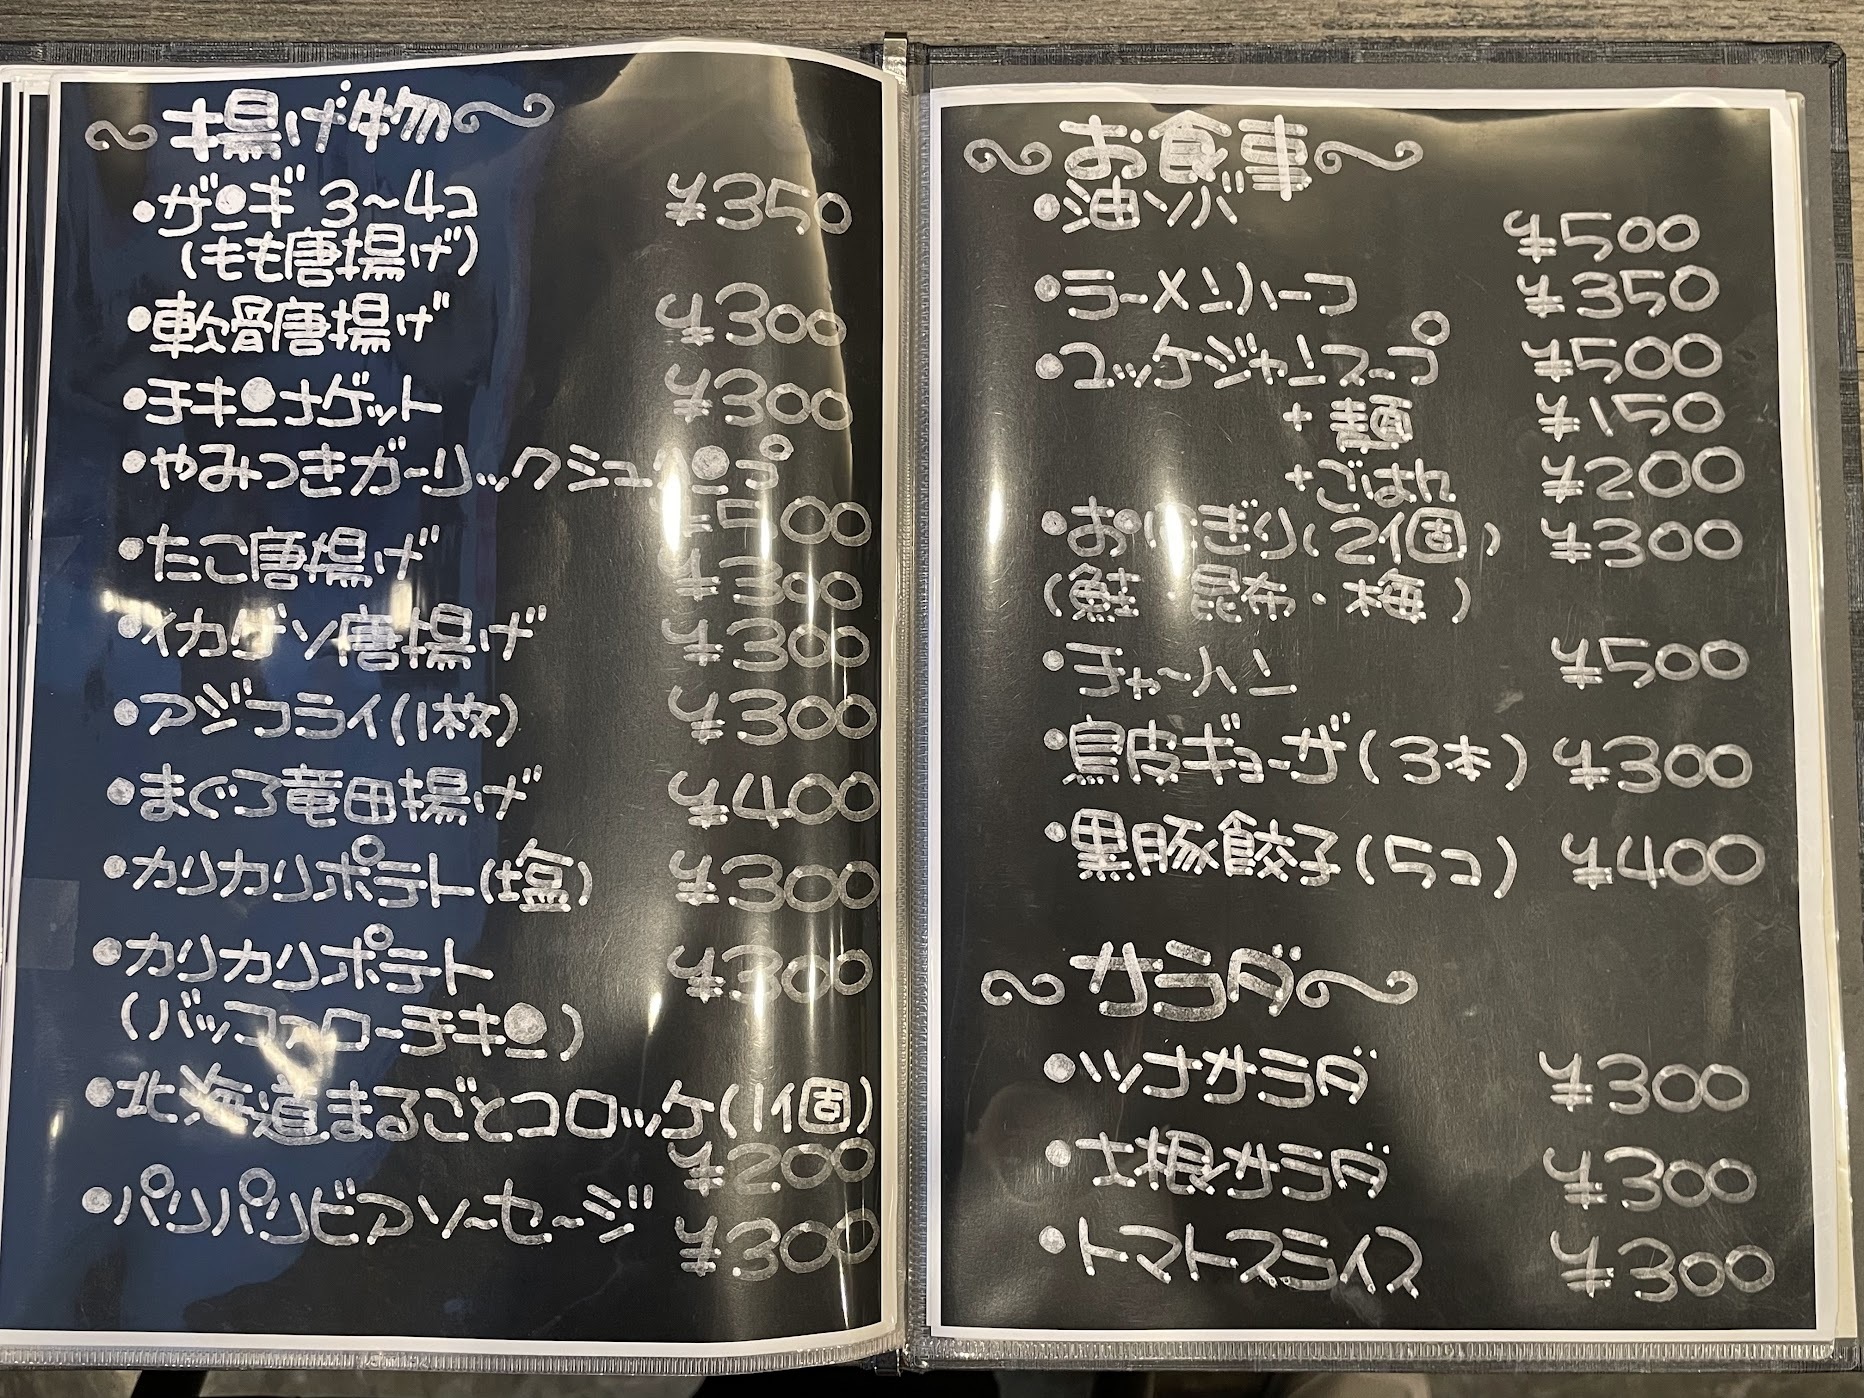 揚げ物
・ザンギ 3〜4コ ¥350
(もも唐揚げ)
・軟骨唐揚げ ¥300
・チキンナゲット ¥300
・やみつきガーリックシュリンプ
¥500
・たこ唐揚げ ¥300
・イカゲソ唐揚げ ¥300
・アジフライ(1枚) ¥300
・まぐろ竜田揚げ ¥400
・カリカリポテト(塩) ¥300
・カリカリポテト ¥300
(バッファローチキン)
・北海道まるごとコロッケ(1個)
¥200
・パリパリビアソーセージ ¥300
お食事
・油ソバ ¥500
・ラーメンハーフ ¥350
・ユッケジャンスープ ¥500
+麺 ¥150
+ごはん ¥200
・おにぎり(2個) ¥300
(鮭・昆布・梅)
・チャーハン ¥500
・鳥皮ギョーザ(3本) ¥300
・黒豚餃子(5コ) ¥400
サラダ
・ツナサラダ ¥300
・大根サラダ ¥300
・トマトスライス ¥300